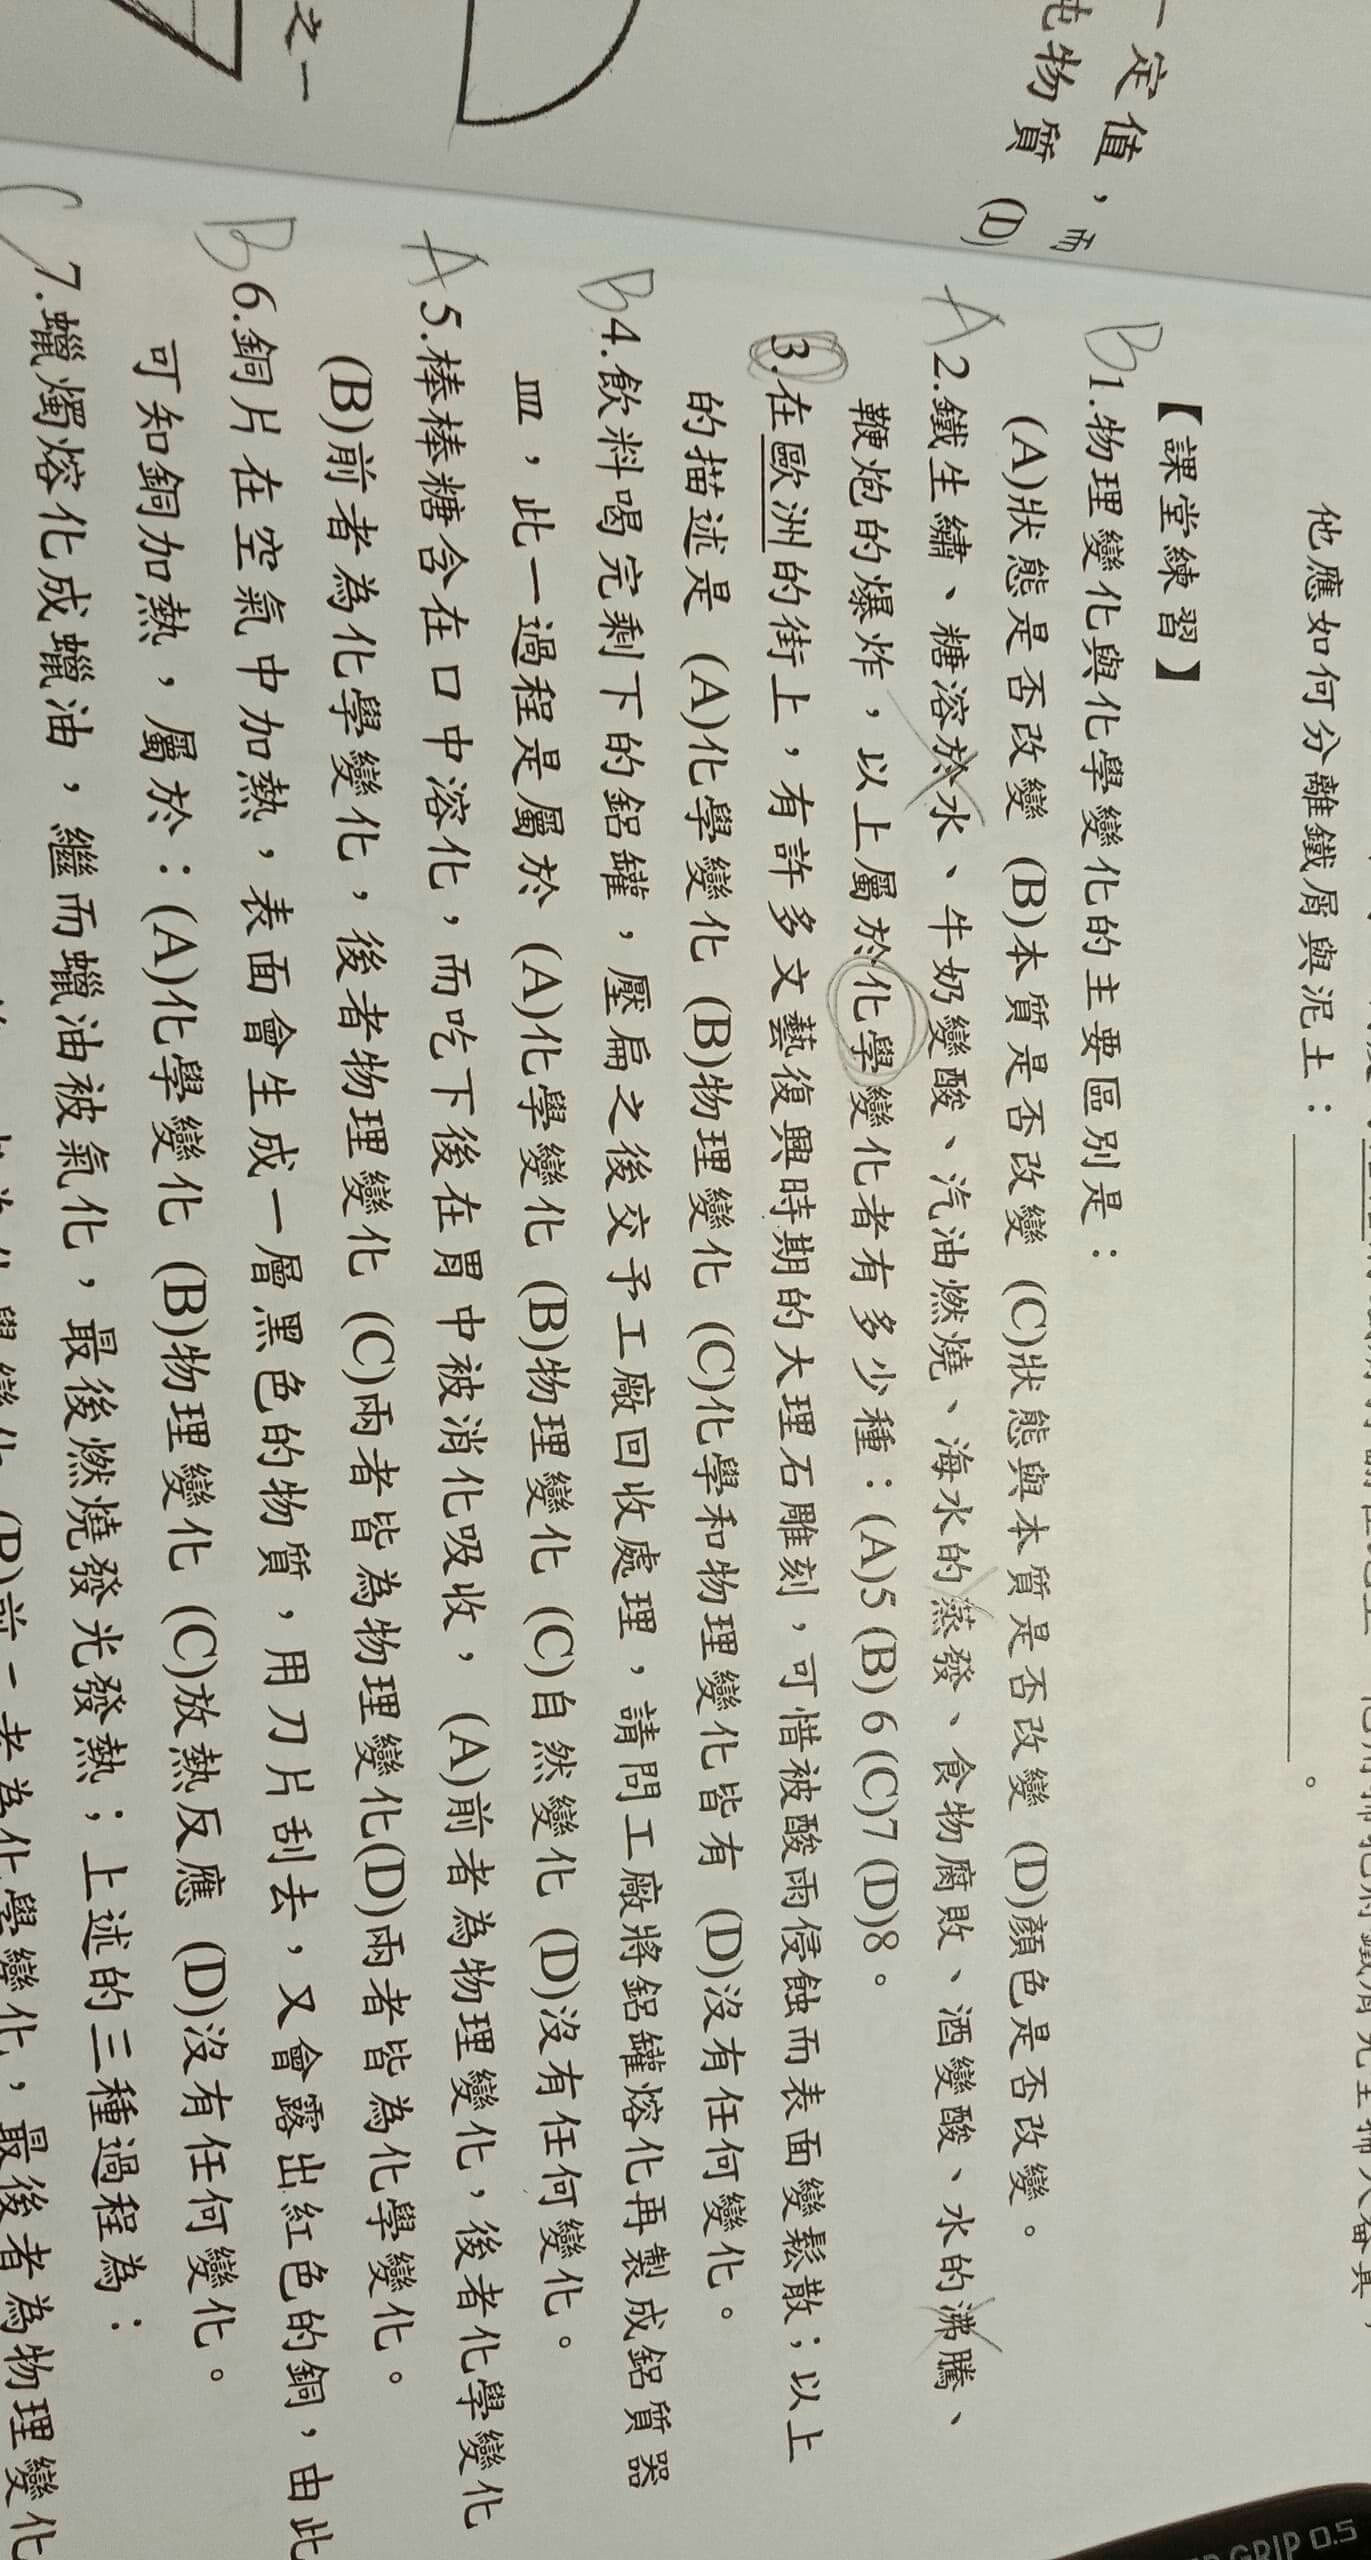 一定值，而
物質 (D)
之一
他應如何分離鐵屑與泥土：
。
【課堂練習】
B 1.物理變化與化學變化的主要區別是：
(A)狀態是否改變 (B)本質是否改變 (C)狀態與本質是否改變 (D)顏色是否改變。
A 2.鐵生鏽、糖溶於水、牛奶變酸、汽油燃燒、海水的蒸發、食物腐敗、酒變酸、水的沸騰、
鞭炮的爆炸，以上屬於化學變化者有多少種：(A)5 (B)6 (C)7 (D)8。
3.在歐洲的街上，有許多文藝復興時期的大理石雕刻，可惜被酸雨侵蝕而表面變鬆散；以上
的描述是 (A)化學變化 (B)物理變化 (C)化學和物理變化皆有 (D)沒有任何變化。
B 4.飲料喝完剩下的鋁罐，壓扁之後交予工廠回收處理，請問工廠將鋁罐熔化再製成鋁質器
皿，此一過程是屬於 (A)化學變化 (B)物理變化 (C)自然變化 (D)沒有任何變化。
A 5.棒棒糖含在口中溶化，而吃下後在胃中被消化吸收， (A)前者為物理變化，後者化學變化
(B)前者為化學變化，後者物理變化 (C)兩者皆為物理變化(D)兩者皆為化學變化。
B 6.銅片在空氣中加熱，表面會生成一層黑色的物質，用刀片刮去，又會露出紅色的銅，由此
可知銅加熱，屬於：(A)化學變化 (B)物理變化 (C)放熱反應 (D)沒有任何變化。
C 7.蠟燭熔化成蠟油，繼而蠟油被氣化，最後燃燒發光發熱；上述的三種過程為：
學變化 (B)前一者為化學變化，最後者為物理變化
GRIP 0.5